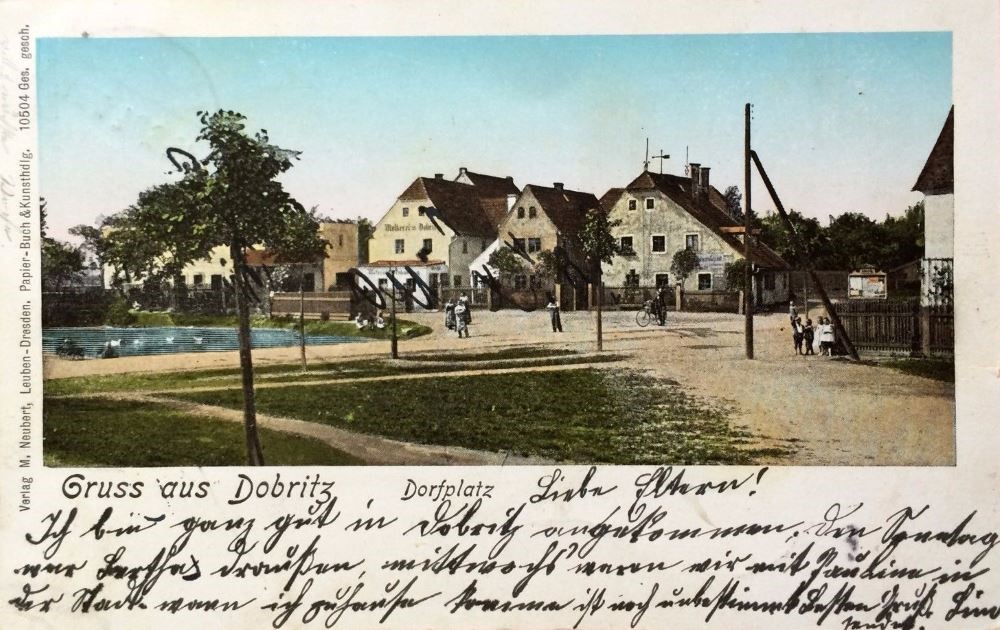 Verlag M. Neubert, Leuben-Dresden. Papier-Buch & Kunsthdlg. 10504 Ges. gesch.
Molkerei
Gruss aus Dobritz
Dorfplatz
Liebe Eltern!
Ich bin ganz gut in Dobritz angekommen. Den Sonntag
war Bertha draußen, mittwochs waren wir mit Pauline in
der Stadt. wann ich zuhause komme ist noch unbestimmt Besten Gruß.
sendet